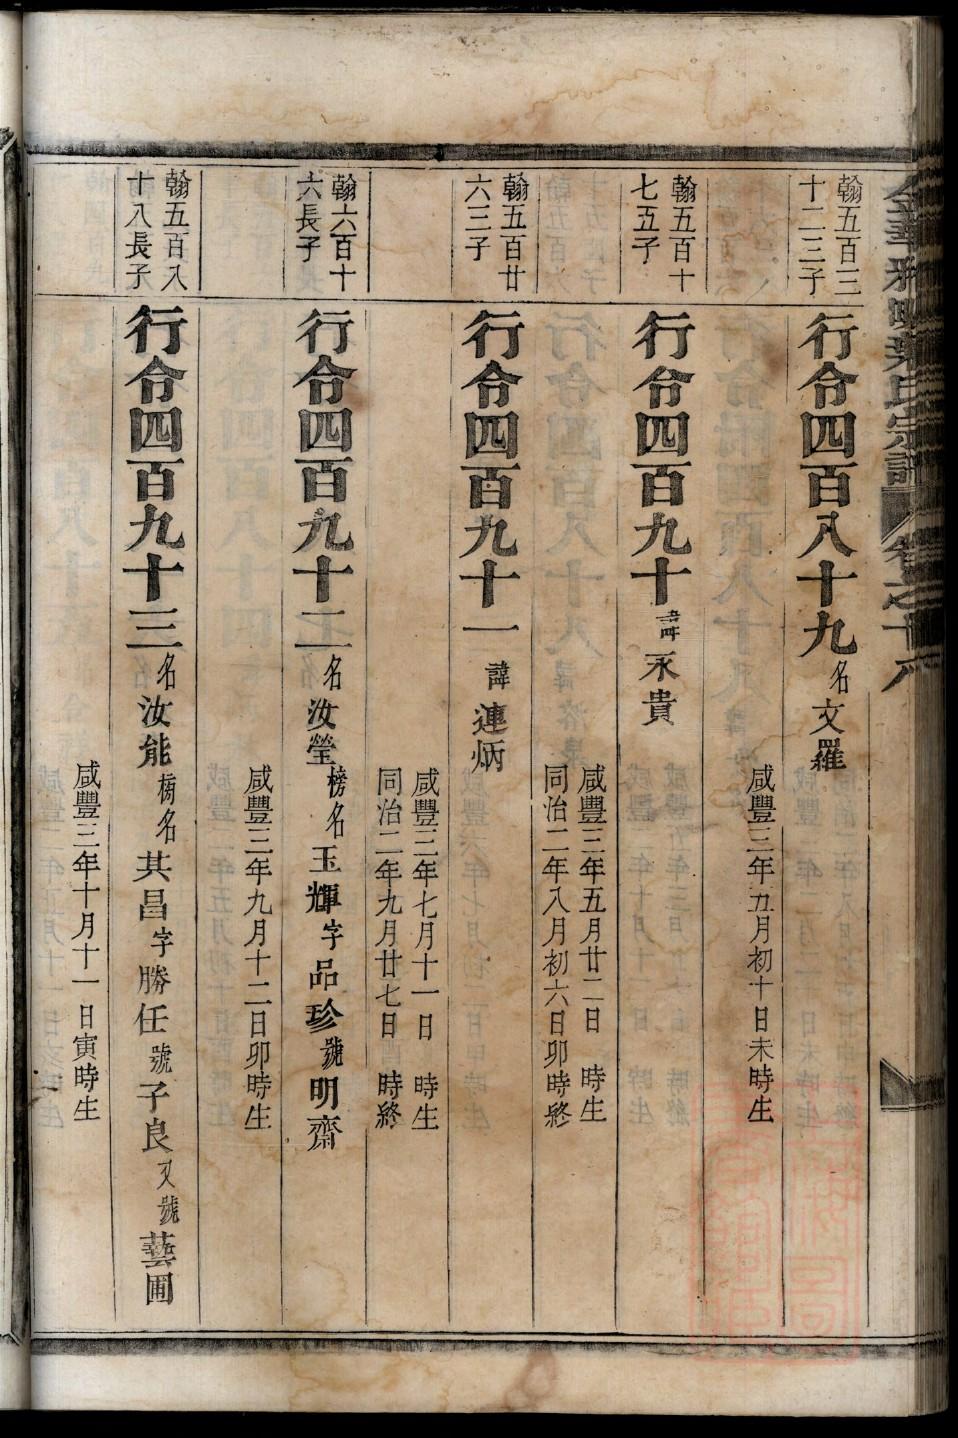 宗譜
卷之十六
翰五百三
十二三子
行令四百八十九 名 文羅
咸豐三年五月初十日未時生
翰五百十
七五子
行令四百九十 諱 永貴
咸豐三年五月廿二日 時生
同治二年八月初六日卯時終
翰五百廿
六三子
行令四百九十一 諱 連炳
咸豐三年七月十一日 時生
同治二年九月廿七日 時終
翰六百十
六長子
行令四百九十二 名 汝瑩 榜名 玉輝 字 品珍 號 明齋
咸豐三年九月十二日卯時生
翰五百八
十八長子
行令四百九十三 名 汝能 榜名 其昌 字 勝任 號 子良 又號 藝圃
咸豐三年十月十一日寅時生